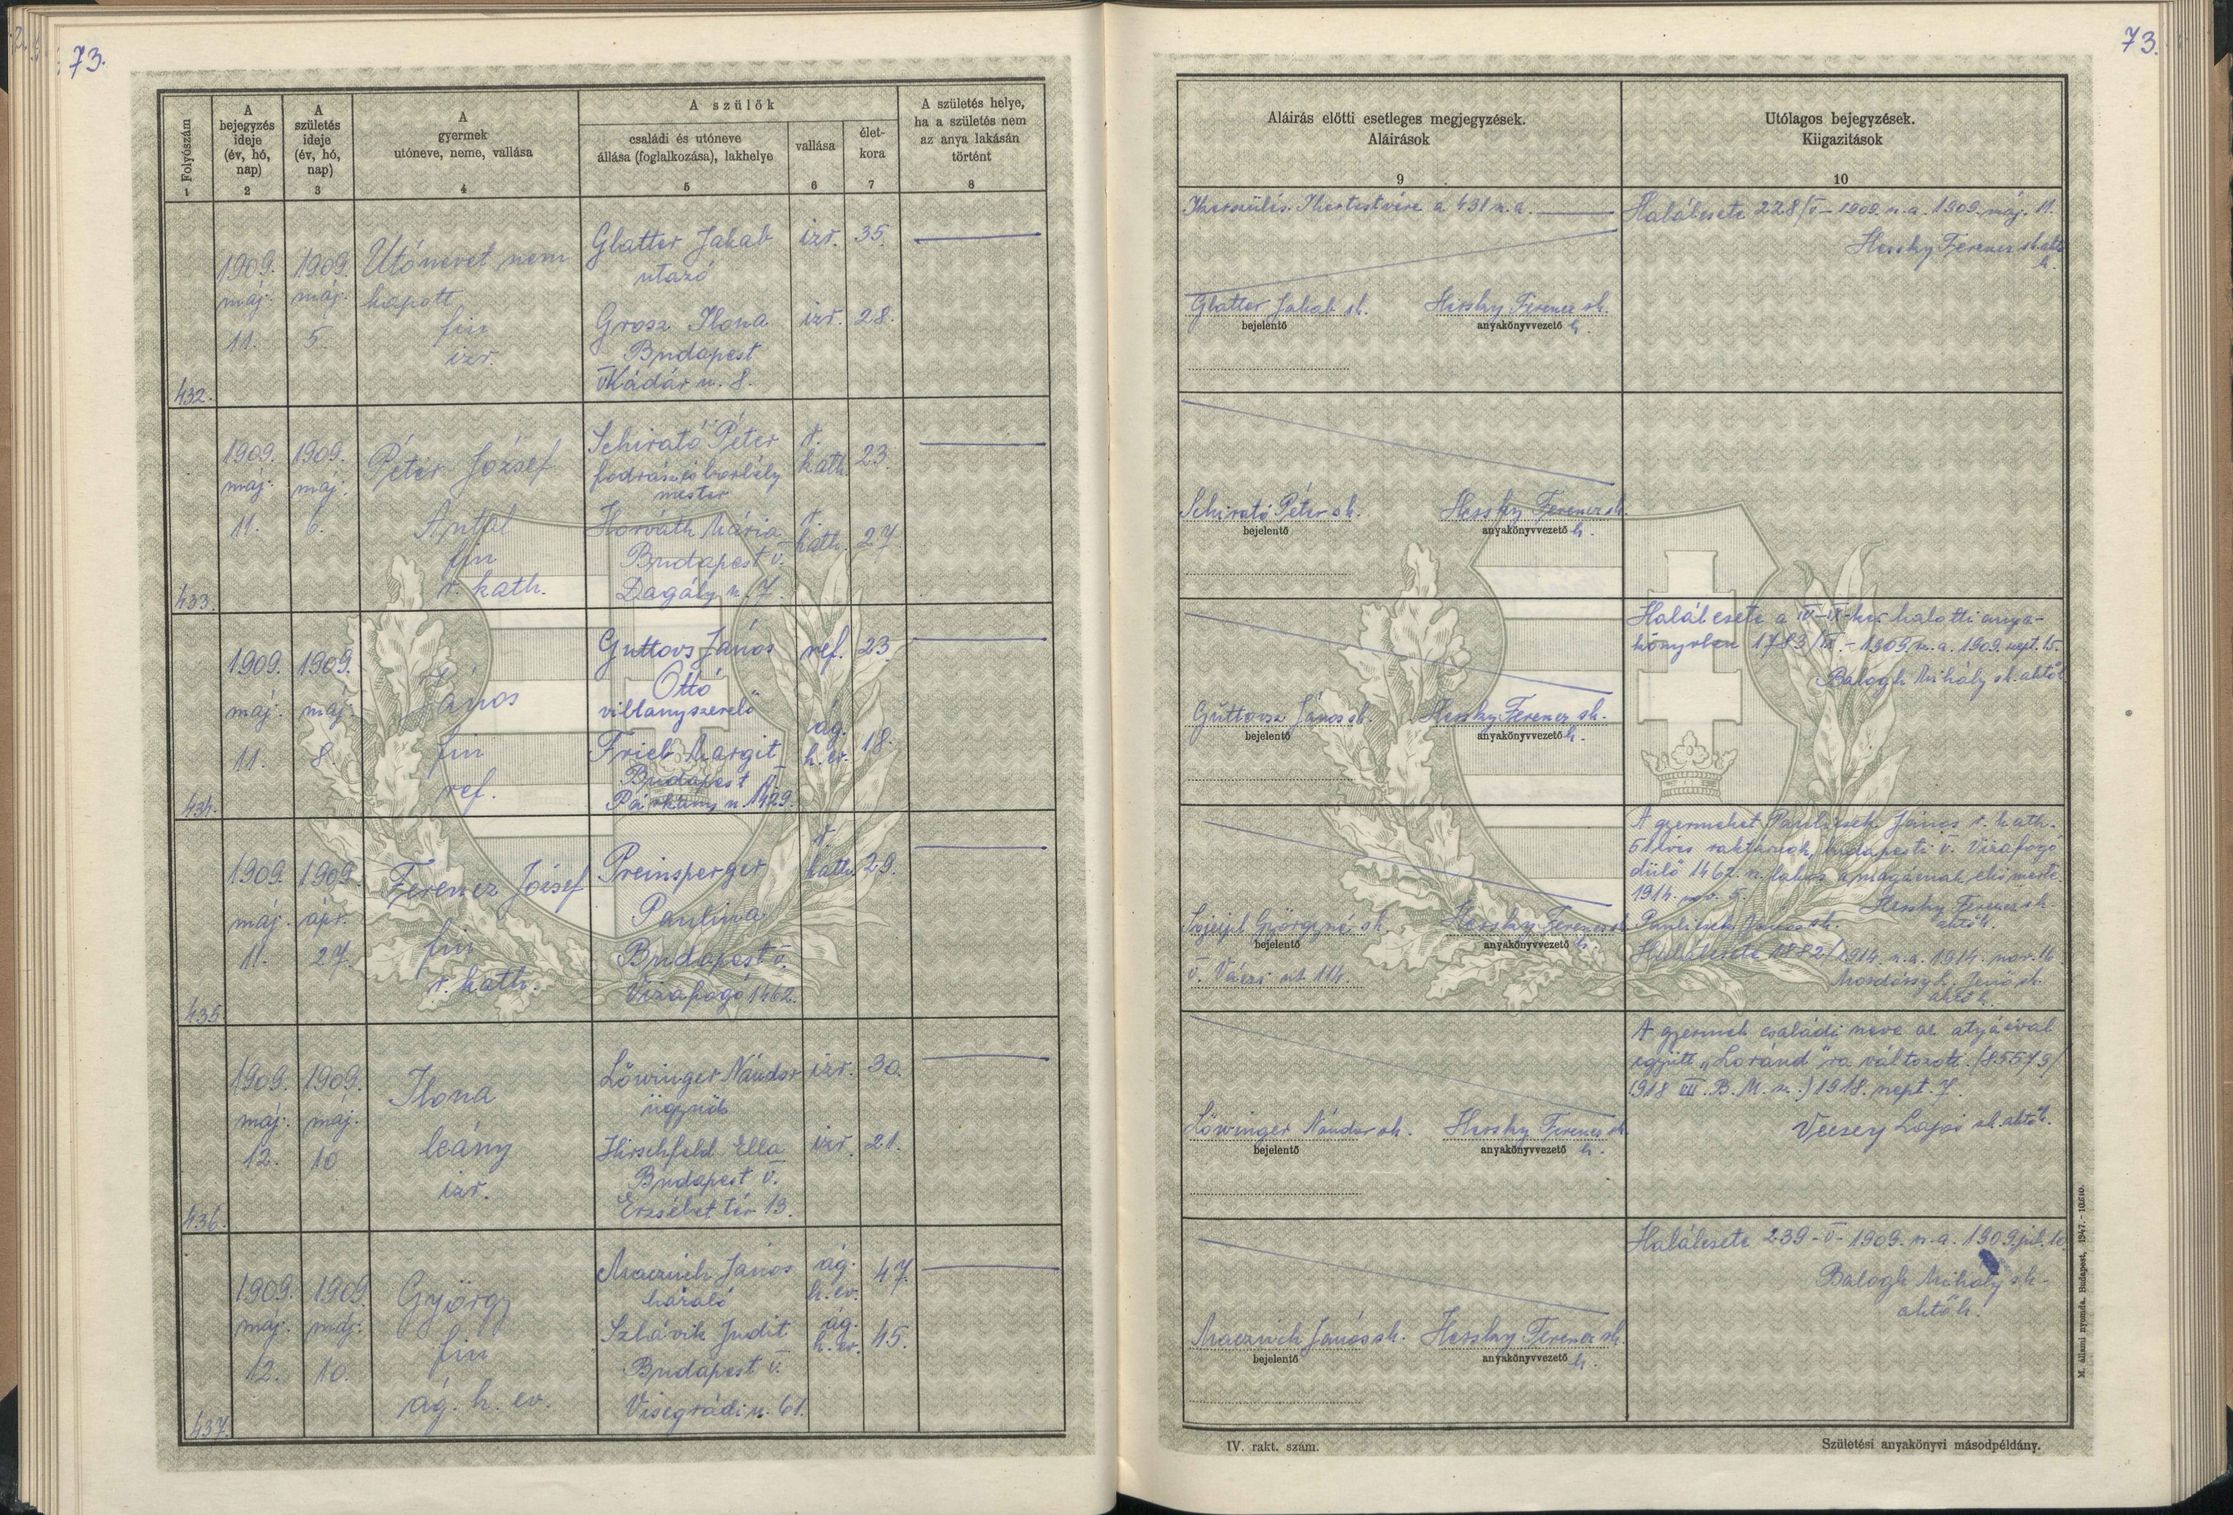 73.
73.
Folyószám
1
A
bejegyzés
ideje
(év, hó,
nap)
2
A
születés
ideje
(év, hó,
nap)
3
A
gyermek
utóneve, neme, vallása
4
A szülők
családi és utóneve
állása (foglalkozása), lakhelye
5
vallása
6
élet-
kora
7
A születés helye,
ha a születés nem
az anya lakásán
történt
8
Aláírás előtti esetleges megjegyzések.
Aláírások
9
Utólagos bejegyzések.
Kiigazitások
10
432.
1909.
máj.
11.
1909.
máj.
5.
Utónevet nem
kapott
fiu
izr.
Glatter Jakab
utazó
Grosz Ilona
Budapest
Kádár u. 8.
izr.
izr.
35.
28.
Ikerszülés. Ikertestvére a 431 n. a.
Glatter Jakab sk.
bejelentő
Hessky Ferencz sk.
anyakönyvvezető h.
Halálesete 228/V-1909. n. a. 1909. máj. 11.
Hessky Ferencz sk. akv.
h.
433.
1909.
máj.
11.
1909.
máj.
6.
Péter József
Antal
fiu
r. kath.
Schirató Péter
fodrász és borbély
mester
Horváth Mária
Budapest V.
Dagály u. 7.
r.
kath.
r.
kath.
23.
27.
Schirató Péter sk.
bejelentő
Hessky Ferencz sk.
anyakönyvvezető h.
434.
1909.
máj.
11.
1909.
máj.
8.
János
fiu
ref.
Guttovs János
Ottó
villanyszerelő
Frieb Margit
Budapest V
Párkány u. 1429.
ref.
ág.
h. ev.
23.
18.
János sk.
bejelentő
Hessky Ferencz sk.
anyakönyvvezető h.
Halálesete a IV-IX ker. halotti anya-
könyvben 1783/IX.-1909. n. a. 1909. szept. 15.
Balogh Mihály sk.
435.
1909.
máj.
11.
1909.
ápr.
27.
Ferencz József
fiu
r. kath.
Preinsperger
Paulina
Budapest V.
Vizafogó 1462.
r.
kath.
29.
Györgyné sk.
bejelentő
V. Váczi ut. 114.
Hessky Ferencz sk.
anyakönyvvezető h.
A gyermeket János r. kath.
51 éves budapesti V. Vizafogó
dülő 1462. sz. lakos magáénak elismerte
1914. nov. 5.
Hessky Ferencz sk.
János sk.
Halálesete 1882/1914. n. a. 1914. nov. 16.
Jenő sk.
436.
1909.
máj.
12.
1909.
máj.
10.
Ilona
leány
izr.
Löwinger Nándor
ügynök
Hirschfeld Ella
Budapest V.
Erzsébet tér 13.
izr.
izr.
30.
21.
Löwinger Nándor sk.
bejelentő
Hessky Ferencz sk.
anyakönyvvezető h.
A gyermek családi neve az atyáéval
együtt „Loránd"ra változott. (85573/
1918 VIII. B. M. sz.) 1918. szept. 7.
Vecsey Lajos sk.
437.
1909.
máj.
12.
1909.
máj.
10.
György
fiu
ág. h. ev.
János
házaló
Szlávik Judit
Budapest V.
Visegrádi u. 61.
ág.
h. ev.
ág.
h. ev.
47.
45.
János sk.
bejelentő
Hessky Ferencz sk.
anyakönyvvezető h.
Halálesete 239-V-1909. n. a. 1909. júl. 10.
Balogh Mihály sk.
IV. rakt. szám.
Születési anyakönyvi másodpéldány.
M. állami nyomda. Budapest, 1947.-10.610.